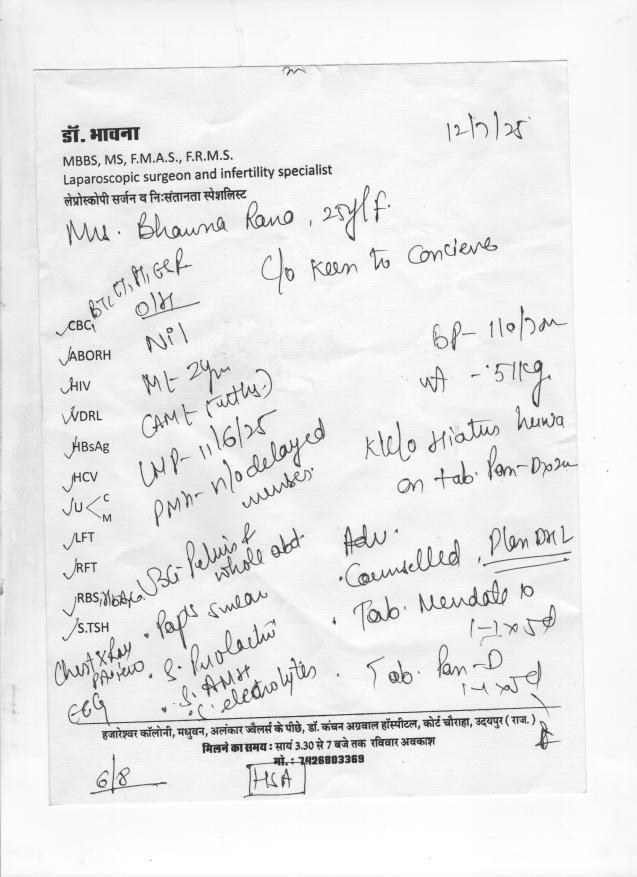 डॉ. भावना
12/7/25
MBBS, MS, F.M.A.S., F.R.M.S.
Laparoscopic surgeon and infertility specialist
लेप्रोस्कोपी सर्जन व निःसंतानता स्पेशलिस्ट
Mrs. Bhawna Rana, 25y/f.
c/o Keen to Concieve
BT, CT,
CBC,
O/H
ABORH
Nil
BP- 110/70
HIV
ML- 2yr
wt - 51kg
VDRL
HBsAg
LMP- 11/6/25
K/c/o Hiatus
HCV
PMH- H/o delayed
menses.
on tab. Pan-D
U < C
M
LFT
USG- Pelvis &
whole abd.
Adv.
RFT
Counselled, Plan DHL
RBS, HbA1c
S.TSH
Paps smear
Tab.
1-1x5d
Chest X Ray
PA view
S. Prolactin
ECG
S. AMH
S. electrolytes
Tab. Pan-D
1-1x5d
हजारेश्वर कॉलोनी, मधुवन, अलंकार ज्वैलर्स के पीछे, डॉ. कंचन अग्रवाल हॉस्पीटल, कोर्ट चौराहा, उदयपुर (राज.)
मिलने का समय : सायं 3.30 से 7 बजे तक रविवार अवकाश
मो. : 7426803369
6/8
HSA